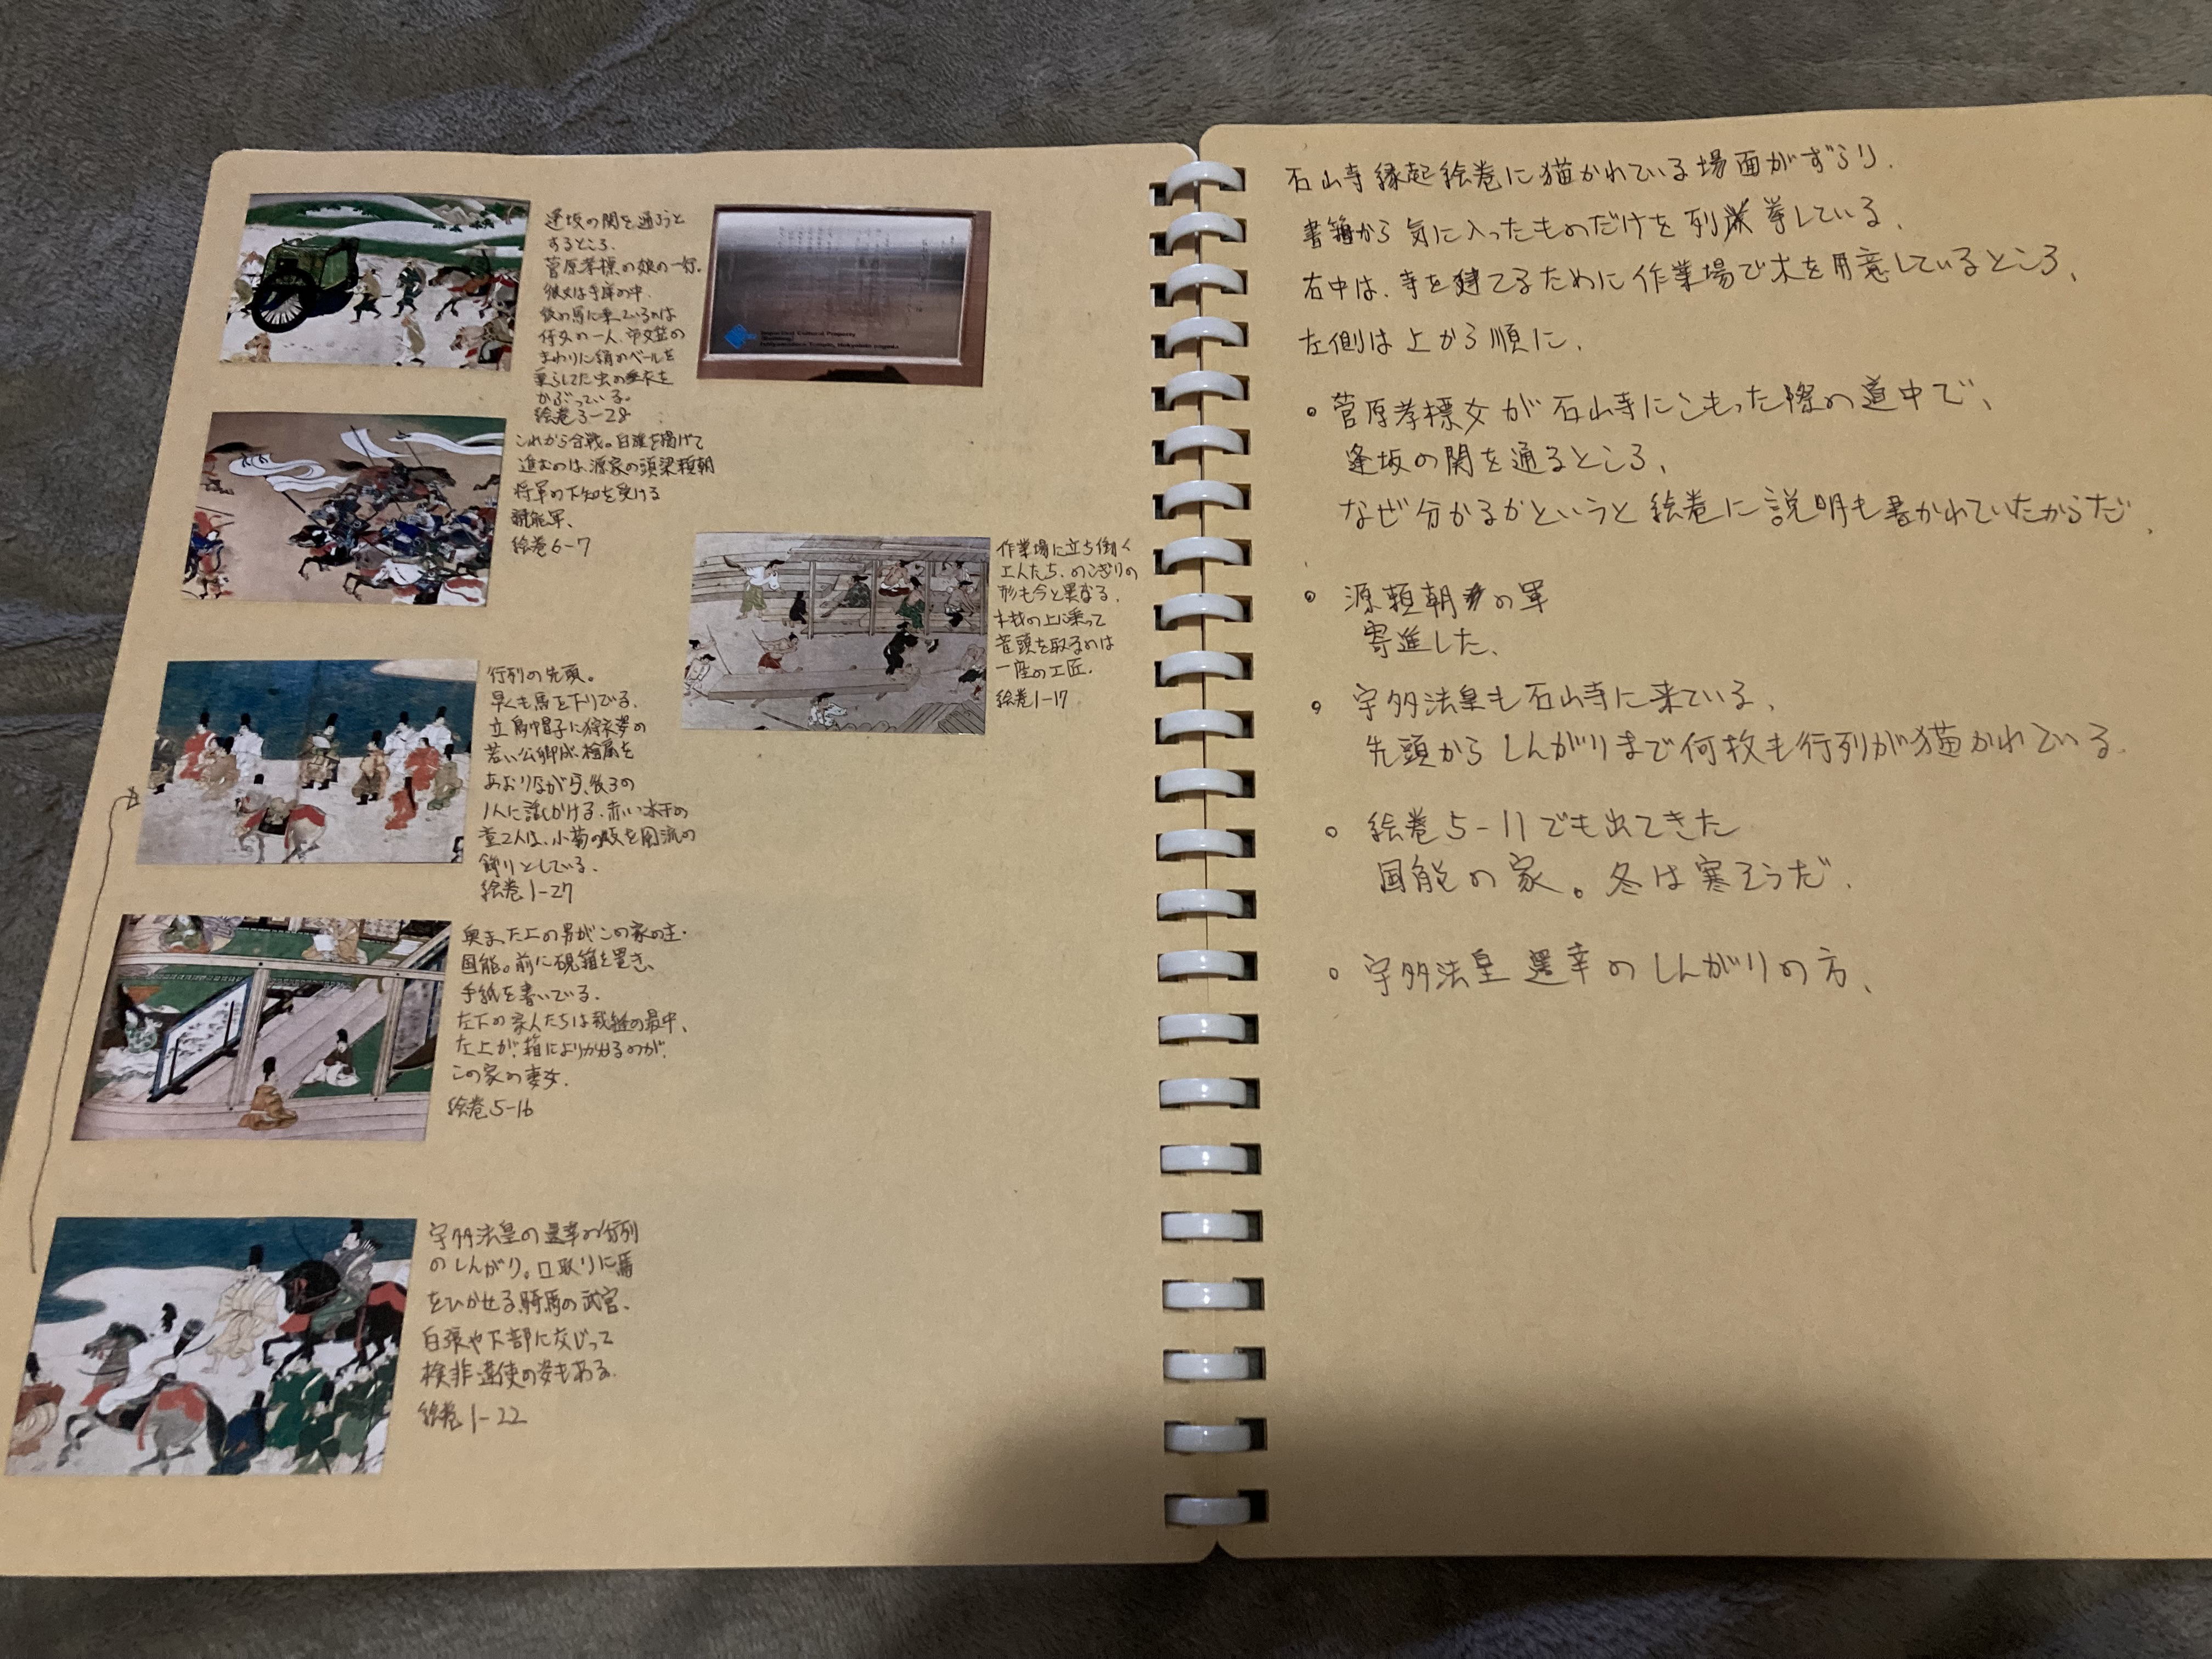 逢坂の関を通ろうと
するところ。
菅原孝標の娘の一行。
彼女は牛車の中。
馬に乗っているのは
侍女の一人、市女笠の
まわりに絹のベールを
垂らした虫の垂衣を
かぶっている。
絵巻3-28
これから合戦。白旗を揚げて
進むのは、源家の頭梁頼朝
将軍の下知を受ける
親能軍、
絵巻6-7
行列の先頭。
早くも馬を下りてる、
立烏帽子に狩衣姿の
若い公卿が、檜扇を
あおりながら、後ろの
1人に話しかける。赤い水干の
童2人は、小菊の枝を風流の
飾りとしている。
絵巻1-27
奥まった上の男がこの家の主・
国能。前に硯箱を置き、
手紙を書いている。
左下の家人たちは裁縫の最中、
左上が、箱によりかかるのが、
この家の妻女。
絵巻5-16
宇多法皇の還幸の行列
のしんがり。口取りに馬
をひかせる騎馬の武官、
白張や下部に交じって
検非違使の姿もある。
絵巻1-22
Important Cultural Property
作業場に立ち働く
工人たち、のこぎりの
形も今と異なる。
木材の上に乗って
音頭を取るのは
一座の工匠。
絵巻1-17
石山寺縁起絵巻に描かれている場面がずらり。
書籍から気に入ったものだけを列挙している。
右中は、寺を建てるために作業場で木を用意しているところ、
左側は上から順に、
・菅原孝標女が石山寺にこもった際の道中で、
逢坂の関を通るところ、
なぜ分かるかというと絵巻に説明も書かれていたからだ。
・源頼朝の軍
寄進した、
・宇多法皇も石山寺に来ている、
先頭からしんがりまで何枚も行列が描かれている。
・絵巻5-11でも出てきた
国能の家。冬は寒そうだ。
・宇多法皇還幸のしんがりの方、